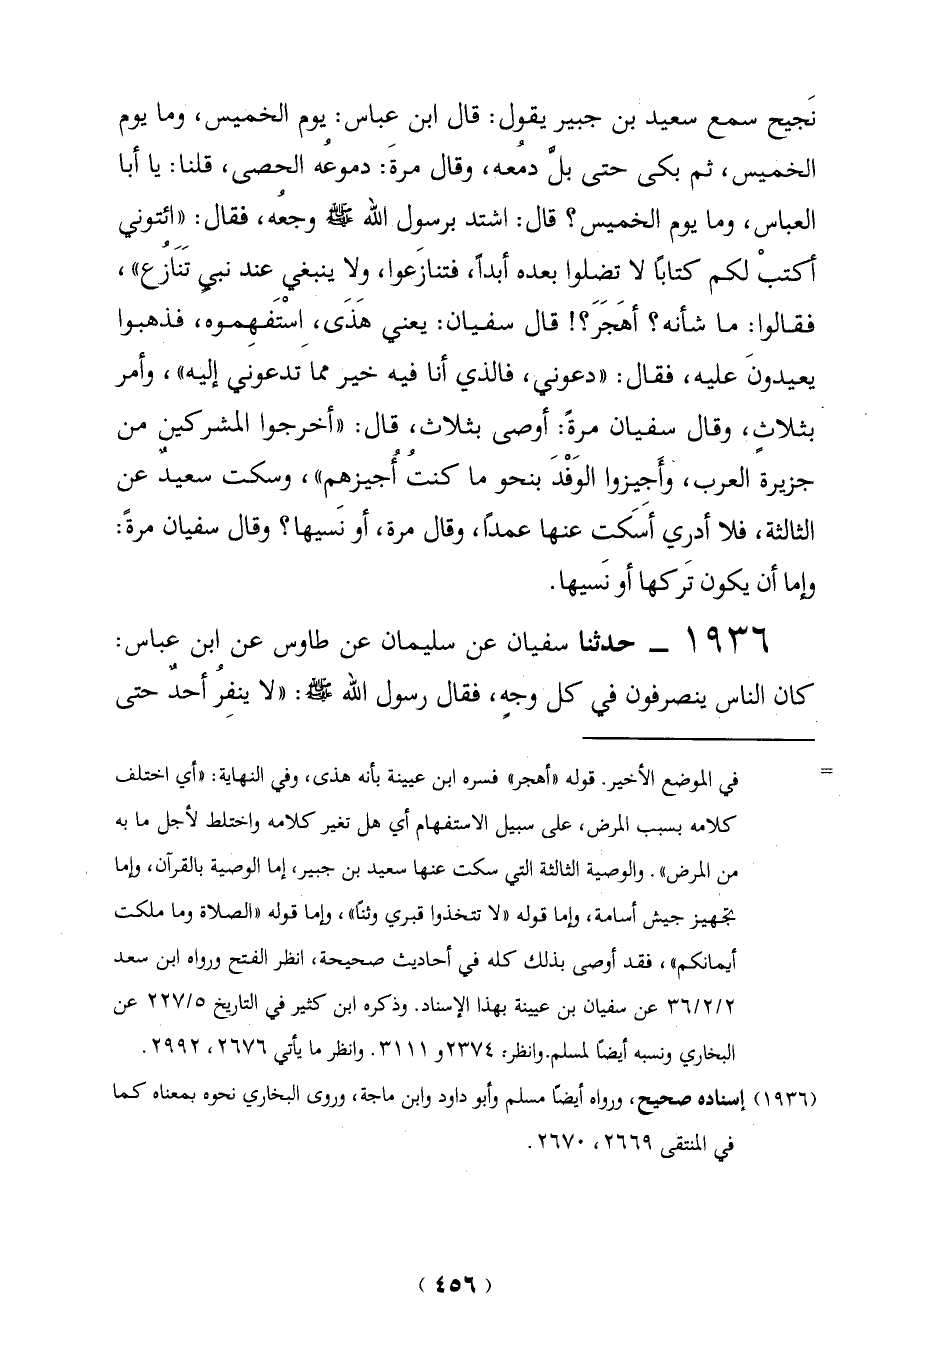 نَجيح سمع سعيد بن جبير يقول: قال ابن عباس: يوم الخميس، وما يوم
الخميس، ثم بكى حتى بلَّ دمعُه، وقال مرةَ: دموعُه الحصى، قلنا: يا أبا
العباس، وما يوم الخميس؟ قال: اشتد برسول الله ﷺ وجعُه، فقال: «ائتوني
أكتبْ لكم كتابًا لا تضلوا بعده أبداً، فتنازَعوا، ولا ينبغي عند نبيٍ تَنَازُع»،
فقالوا: ما شأنه؟ أهَجَرَ؟! قال سفيان: يعني هَذَى، استَفْهِموه، فذهبوا
يعيدونَ عليه، فقال: «دعوني، فالذي أنا فيه خير مما تدعوني إليه»، وأمر
بثلاثٍ، وقال سفيان مرةً: أوصى بثلاث، قال: «أخرجوا المشركين من
جزيرة العرب، وأَجيزوا الوَفْدَ بنحو ما كنتُ أُجيزهم»، وسكت سعيدٌ عن
الثالثة، فلا أدري أسَكَت عنها عمداً، وقال مرة، أو نَسيها؟ وقال سفيان مرةً:
وإما أن يكون تَركها أو نَسيها.
١٩٣٦ ــ حدثنا سفيان عن سليمان عن طاوس عن ابن عباس:
كان الناس ينصرفون في كل وجهٍ، فقال رسول الله ﷺ: «لا ينفِرُ أحدٌ حتى
= في الموضع الأخير. قوله «أهجر» فسره ابن عيينة بأنه هذى، وفي النهاية: «أي اختلف
كلامه بسبب المرض، على سبيل الاستفهام أي هل تغير كلامه واختلط لأجل ما به
من المرض». والوصية الثالثة التي سكت عنها سعيد بن جبير، إما الوصية بالقرآن، وإما
تجهيز جيش أسامة، وإما قوله «لا تتخذوا قبري وثنًا»، وإما قوله «الصلاة وما ملكت
أيمانكم»، فقد أوصى بذلك كله في أحاديث صحيحة، انظر الفتح ورواه ابن سعد
٣٦/٢/٢ عن سفيان بن عيينة بهذا الإسناد. وذكره ابن كثير في التاريخ ٢٢٧/٥ عن
البخاري ونسبه أيضًا لمسلم.وانظر: ٢٣٧٤و ٣١١١. وانظر ما يأتي ٢٦٧٦، ٢٩٩٢.
(١٩٣٦) إسناده صحيح، ورواه أيضًا مسلم وأبو داود وابن ماجة، وروى البخاري نحوه بمعناه كما
في المنتقى ٢٦٦٩، ٢٦٧٠.
(٤٥٦)